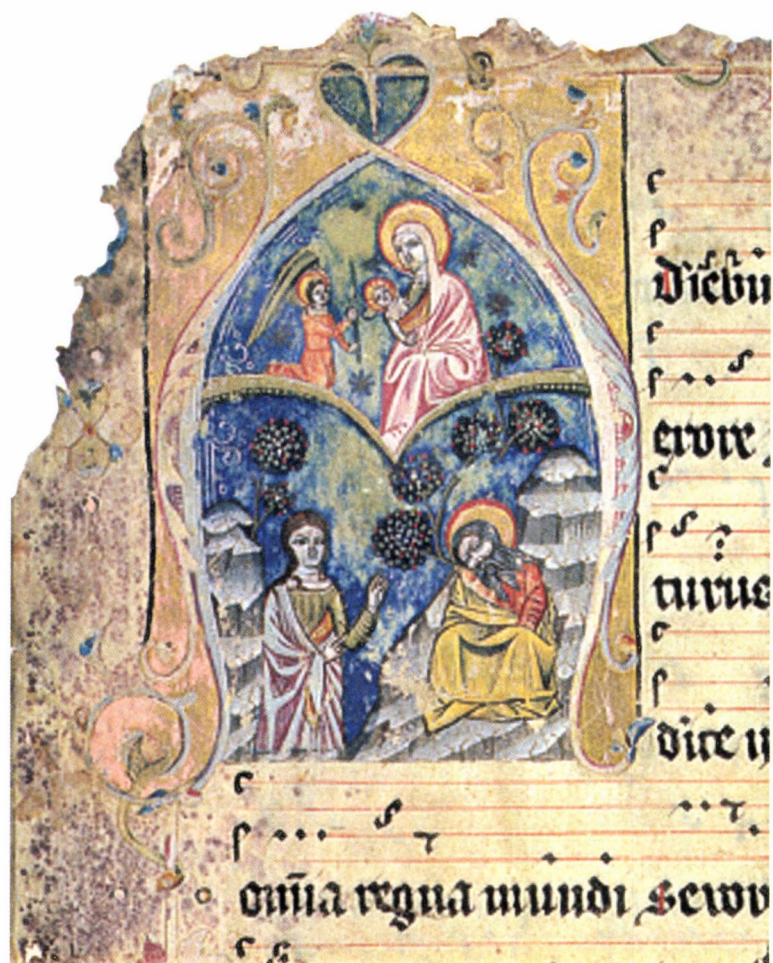 diebu
erore
turus
dice
om̄ia regna mundi